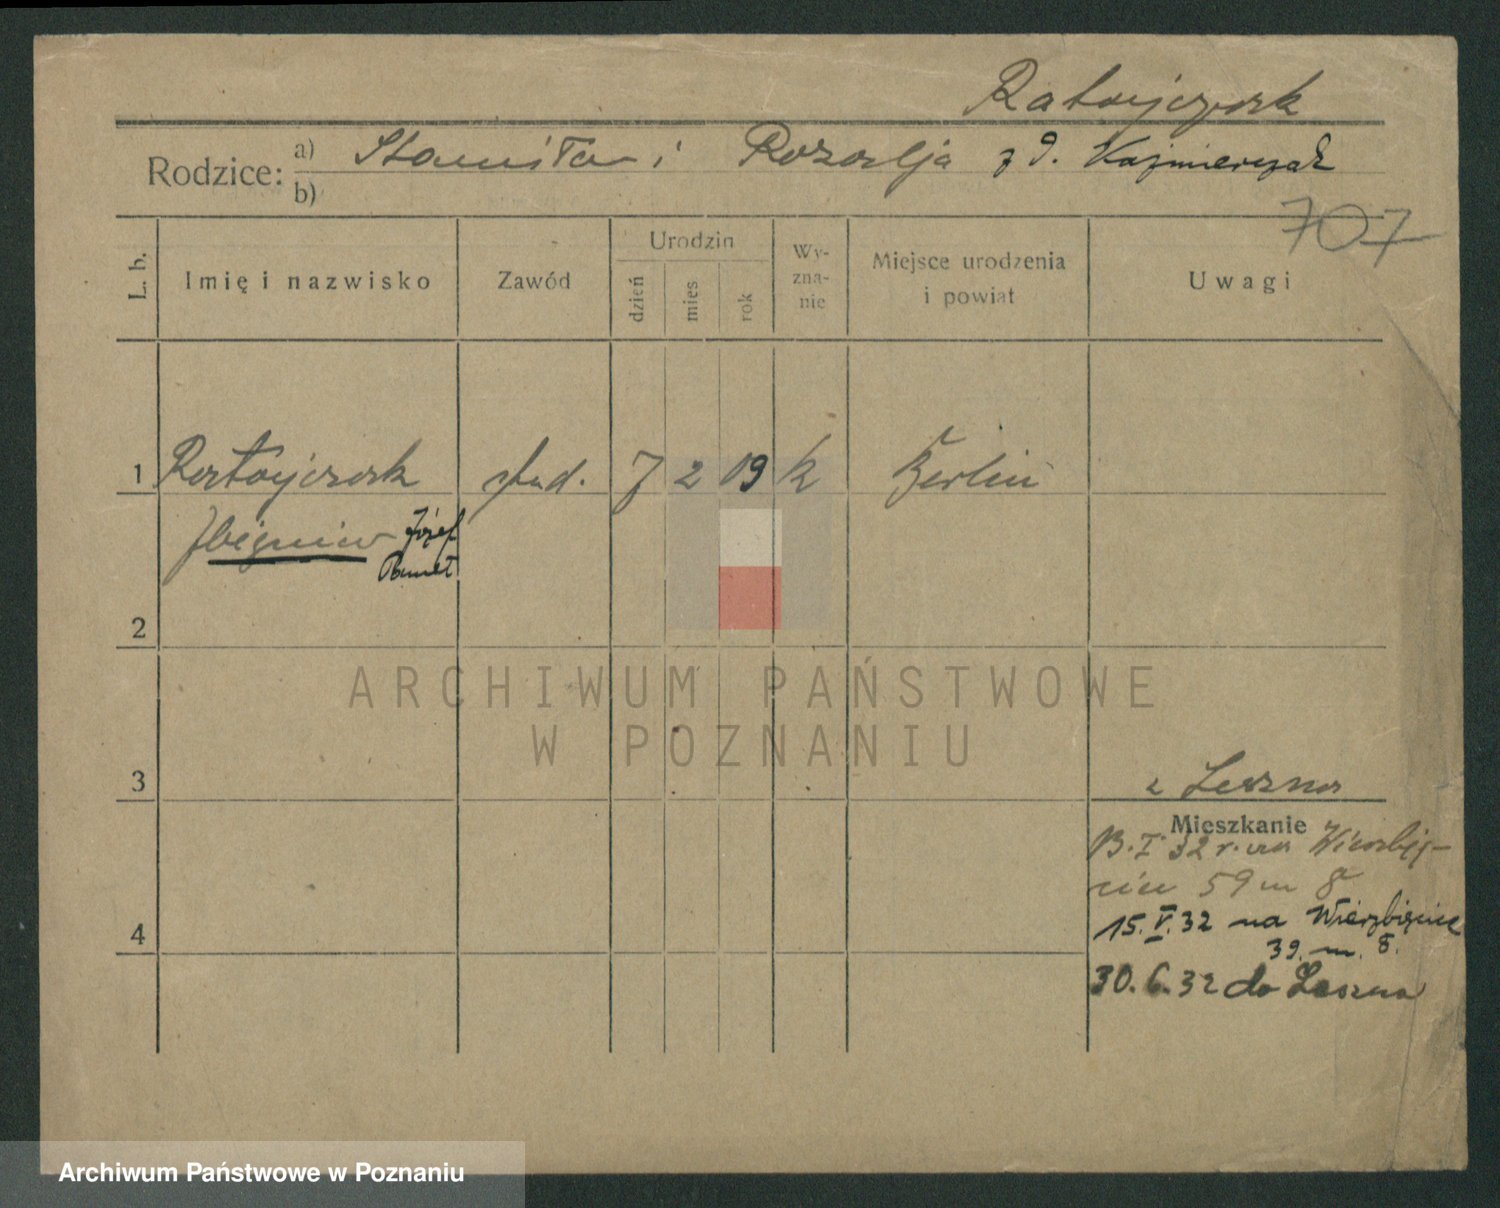 Ratajczak
Rodzice: a) Stanisław i Rozalja z d. Kaźmierczak
b)
707
L. b.
Imię i nazwisko
Zawód
Urodzin
dzień
mies
rok
Wy-
zna-
nie
Miejsce urodzenia
i powiat
Uwagi
1 Ratajczak stud. 7 2 19 k Berlin
Zbigniew Józef
2
ARCHIWUM PAŃSTWOWE
W POZNANIU
3
z Leszna
Mieszkanie
I 32 r. na Wierzbię-
cice 59 m 8
4
15.V.32 na Wierzbięcice
39. m. 8.
30.6.32 do Leszna
Archiwum Państwowe w Poznaniu